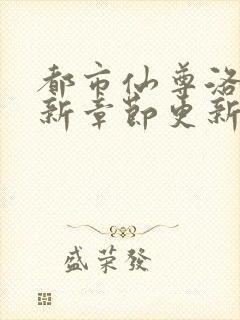 都市仙尊洛
新章節更新
盛荣發